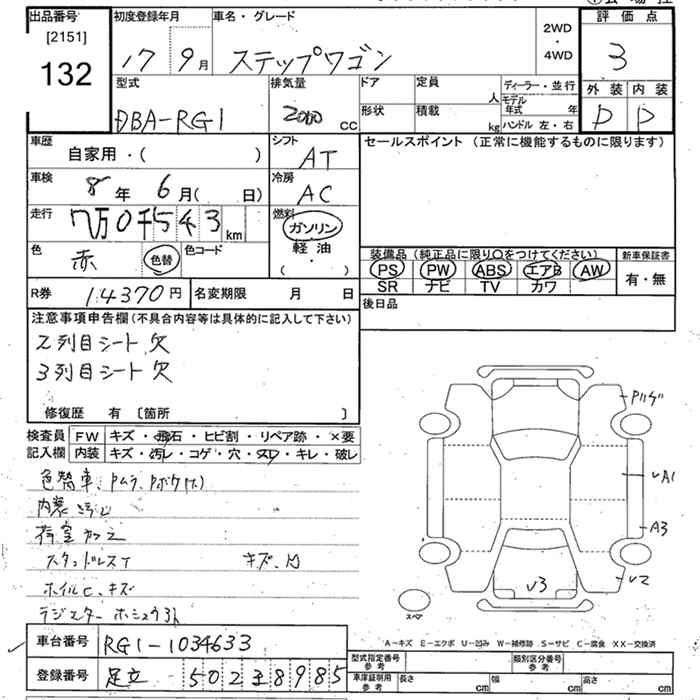 出品番号 [2151] 132
初度登録年月 17 9月
車名・グレード ステップワゴン
2WD ・ 4WD
評価点 3
外装 内装 D D
型式 DBA-RG1
排気量 2000 cc
ドア 形状
定員 人
積載 kg
ディーラー・並行
モデル年式 年
ハンドル 左・右
車歴 自家用・( )
シフト AT
セールスポイント (正常に機能するものに限ります)
車検 8年 6月( 日)
冷房 AC
走行 7万0千543km
燃料 ガソリン 軽油 ( ・ )
色 赤 色替 色コード
装備品(純正品に限り○をつけてください)
PS PW ABS エアB AW
SR ナビ TV カワ
新車保証書 有・無
R券 14370円
名変期限 月 日
後日品
注意事項申告欄(不具合内容等は具体的に記入して下さい)
2列目シート欠
3列目シート欠
修復歴 有 [箇所 ]
検査員記入欄
FW キズ・飛石・ヒビ割・リペア跡・×要
内装 キズ・汚レ・コゲ・穴・スレ・キレ・破レ
色替車、Pムラ、Pボケ(大)
内装
荷室
スタッドレスT キズ、凹
ホイルC、キズ
ラジエター
Pハゲ
VA1
A3
V2
V3
スペア
A−キズ E−エクボ U−凹み W−補修跡 S−サビ C−腐食 XX−交換済
車台番号 RG1-1034633
登録番号 足立 502 3 8985
型式指定番号 参考
類別区分番号 参考
車庫証明用 参考 長さ cm 幅 cm 高さ cm